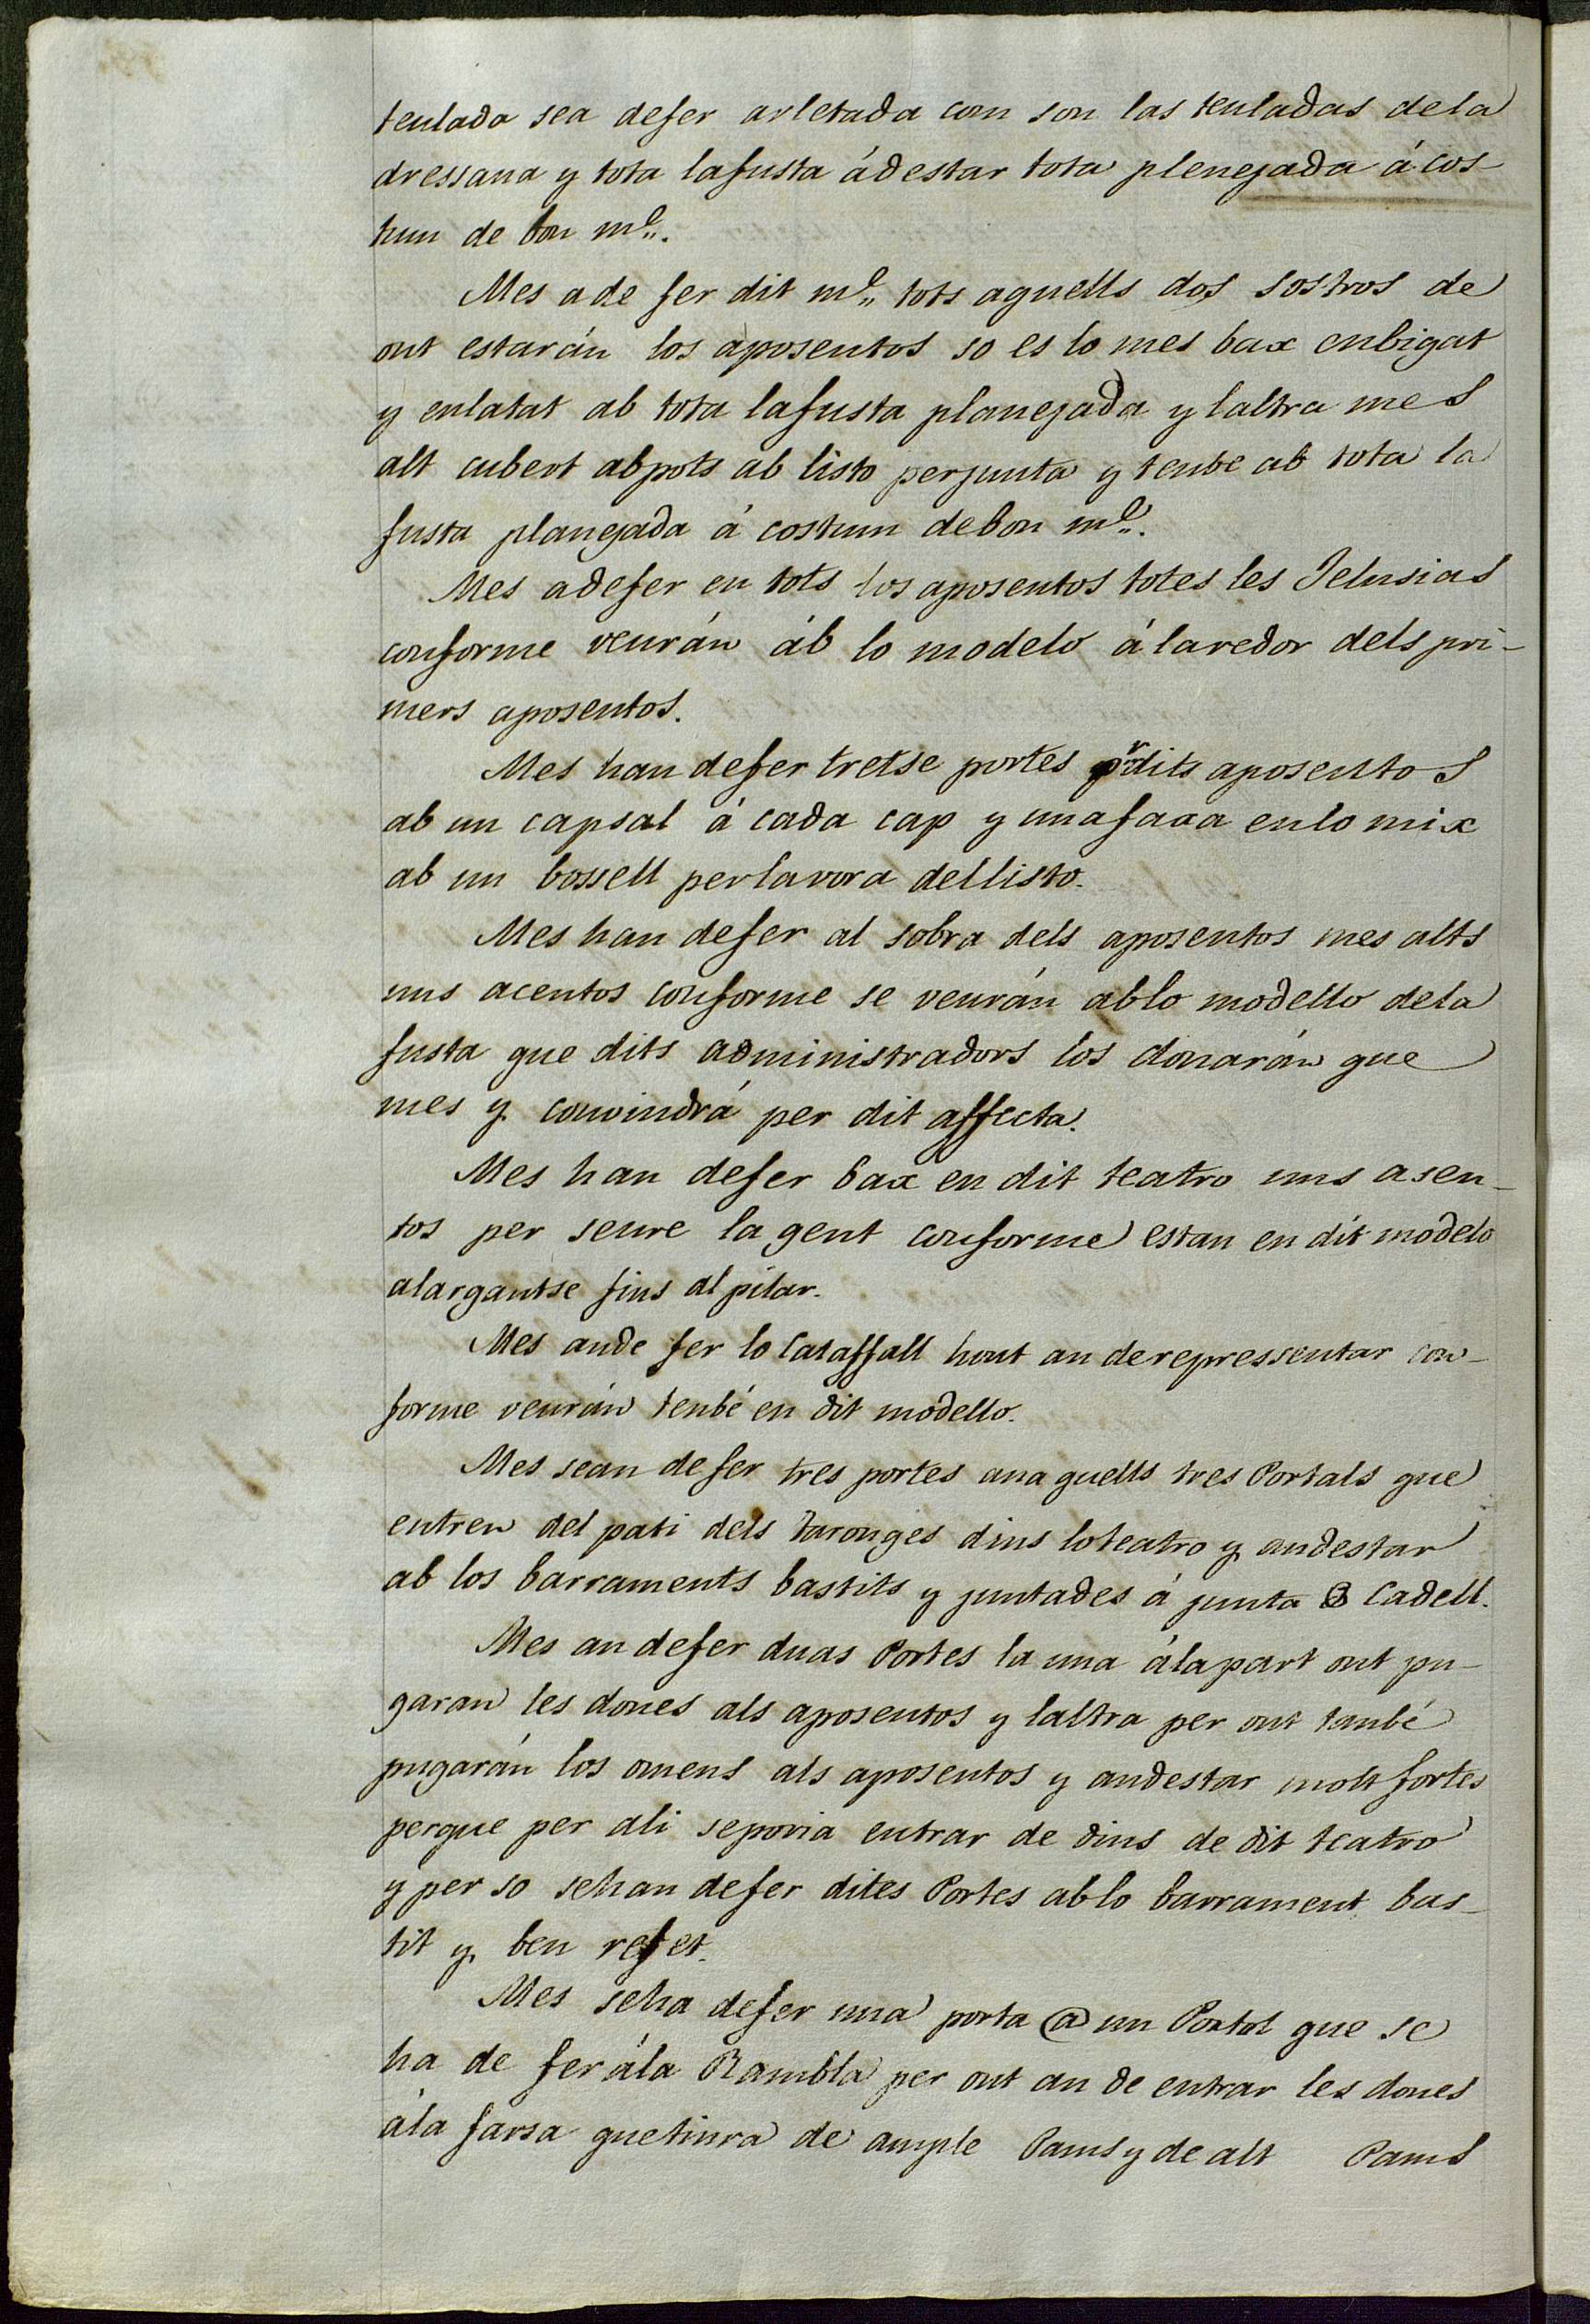 teulada sea defer arletada com son las teuladas dela
dressana y tota lafusta ádestar tota plenejada á cos-
tum de bon mº..
Mes a de fer dit mº.. tots aquells dos sostros de
ont estarán los aposentos so es lo mes bax enbigat
y enlatat ab tota lafusta planejada y laltra mes
alt cubert abpots ab listo perjunta y tenbe ab tota la
fusta planejada á costum debon mº..
Mes adefer en tots los aposentos totes les Jelusias
conforme veurán áb lo modelo á laredor dels pri-
mers aposentos.
Mes han defer tretse portes pr dits aposentos
ab un capsal á cada cap y unafaxa enlo mix
ab un bossell perlavora dellisto.
Mes han defer al sobra dels aposentos mes alts
uns acentos conforme se veurán ablo modello dela
fusta que dits administradors los donarán que
mes y convindrá per dit affecta.
Mes han defer bax en dit teatro uns asen-
tos per seure la gent conforme estan en dit modelo
alargantse fins al pilar.
Mes ande fer lo Cataffall hont an derepressentar con-
forme veurán tenbé en dit modello.
Mes sean defer tres portes anaquells tres Portals que
entren del pati dels Taronges dins loteatro y andestar
ab los barraments bastits y juntades á junta B Cadell.
Mes an defer duas Portes la una álapart ont pu-
garan les dones als aposentos y laltra per ont també
pugarán los omens als aposentos y andestar molt fortes
perque per ali seporia entrar de dins de dit teatro
y per so sehan defer dites Portes ablo barrament bas-
tit y ben refet.
Mes seha defer una porta @ un Portal que se
ha de fer ála Rambla per ont an de entrar les dones
ála farsa quetinra de ample Pams y de alt Pams